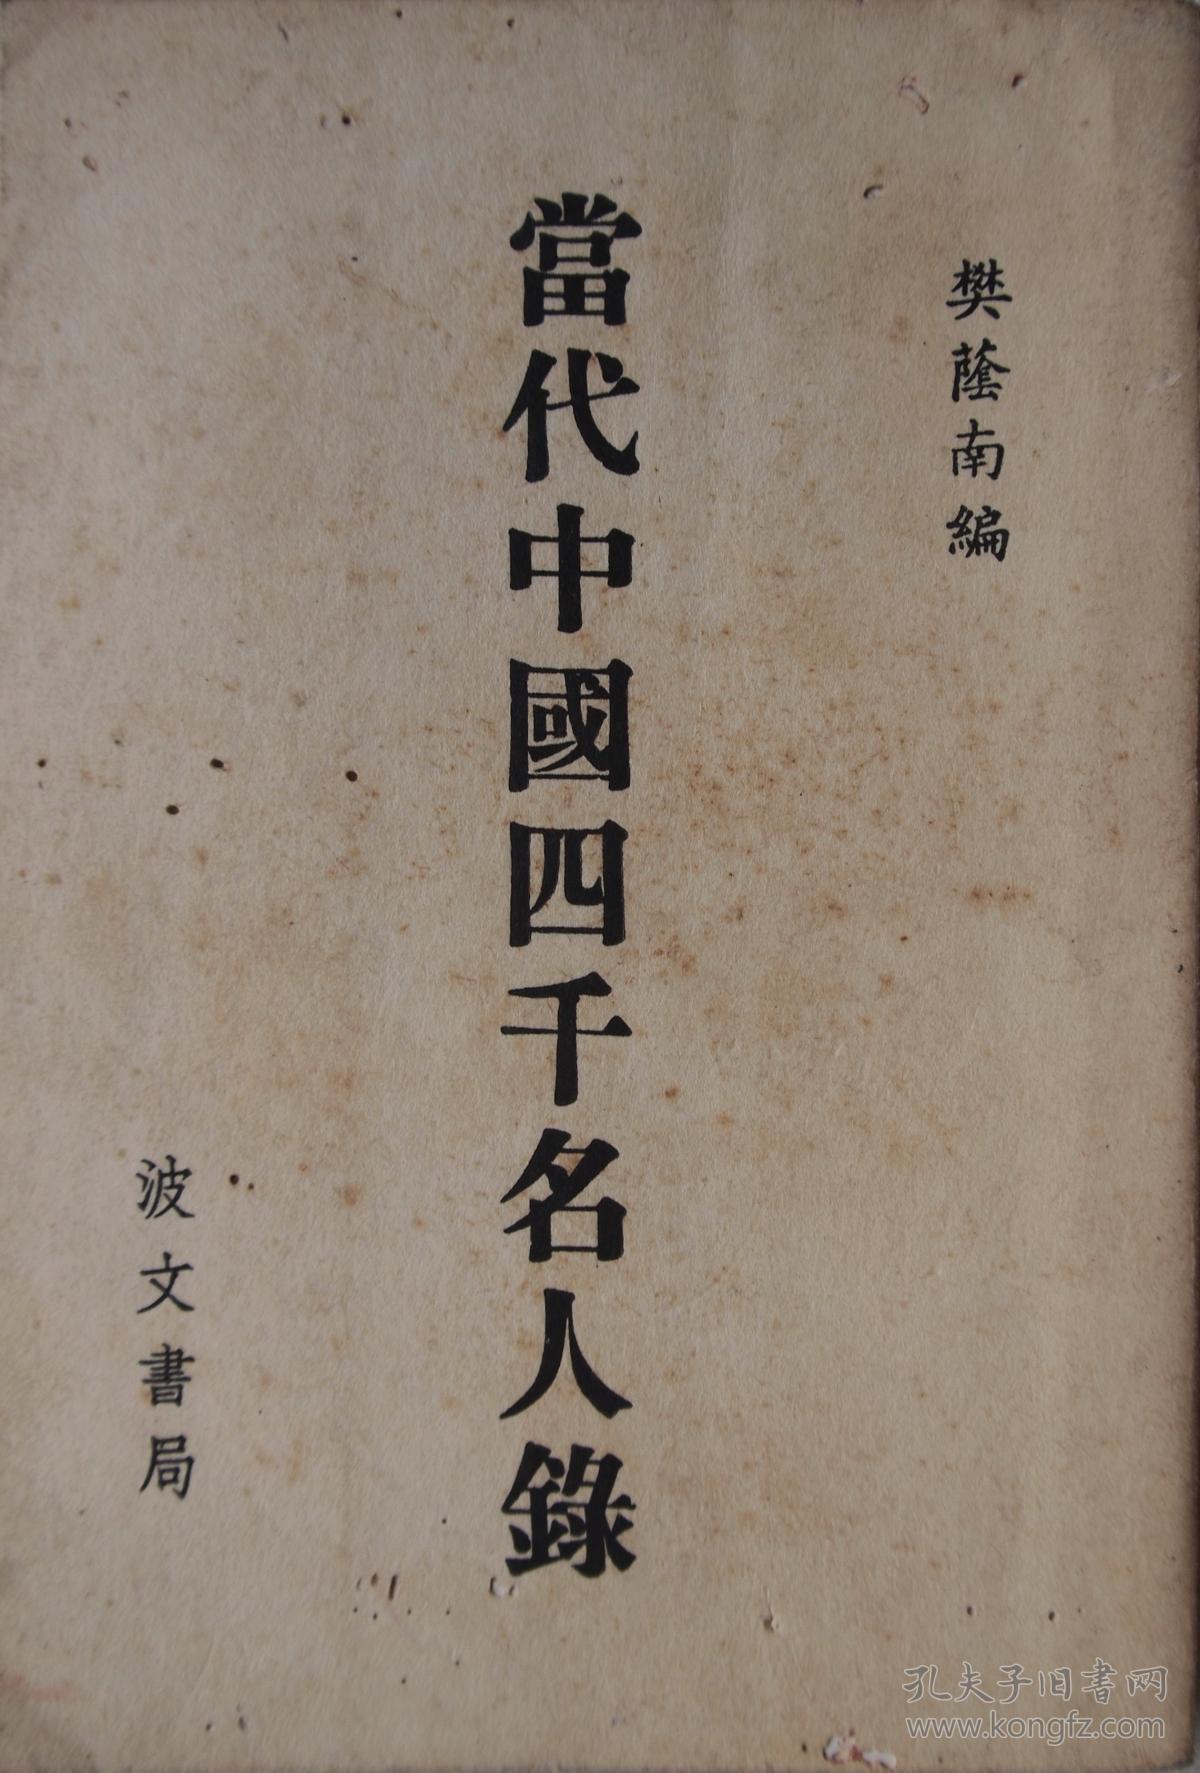 樊蔭南編
當代中國四千名人錄
波文書局
孔夫子旧书网
www.kongfz.com